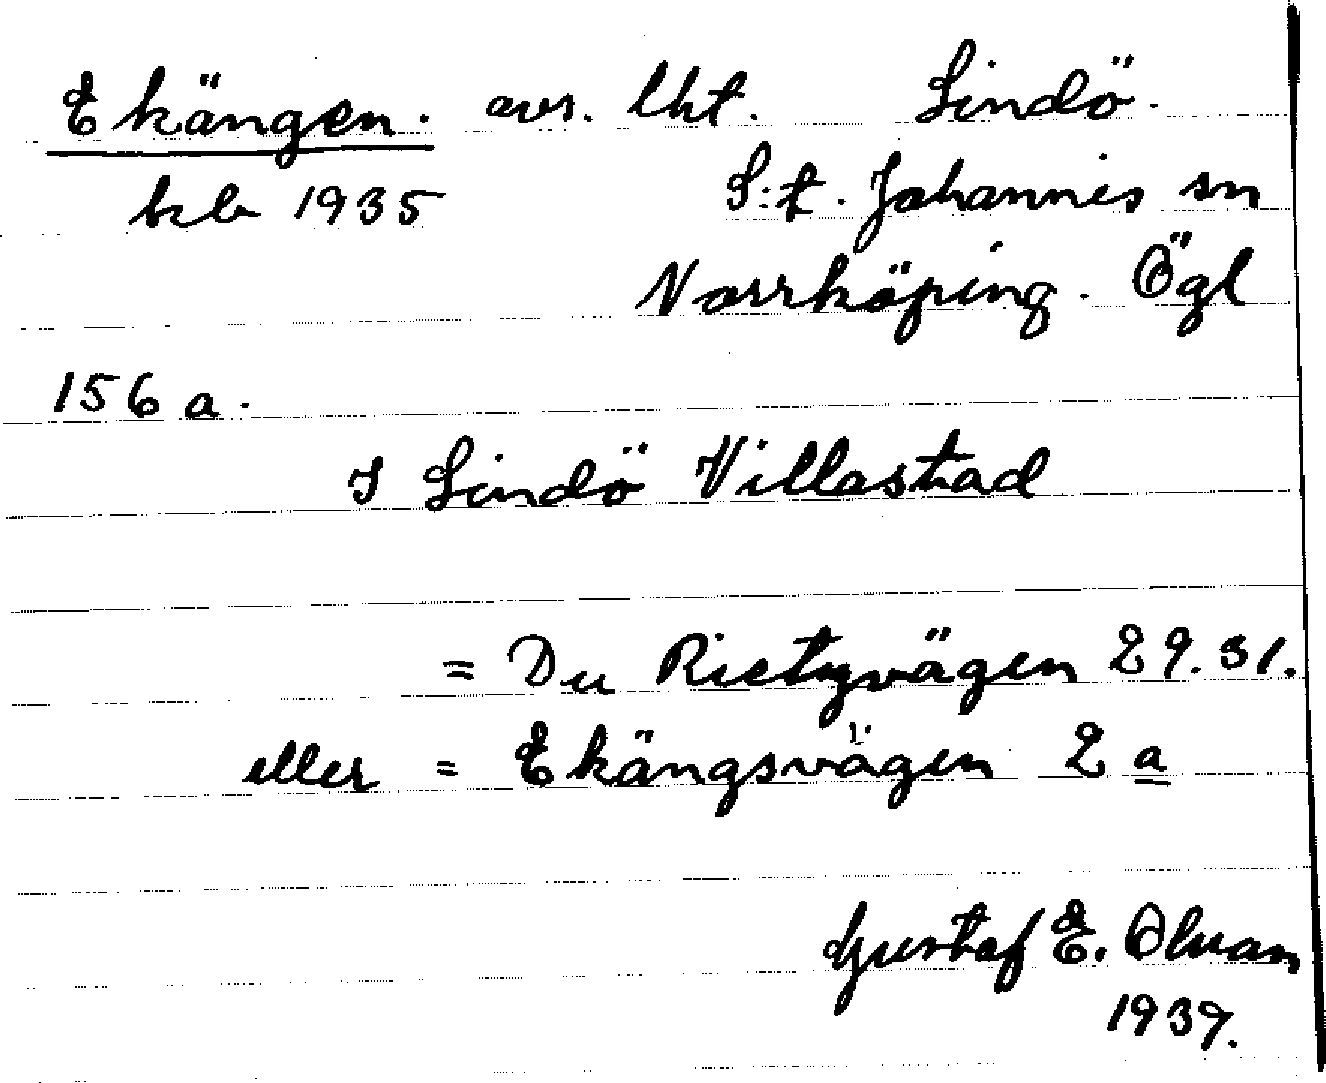 Ekängen. avs. lht. Lindö.
kb 1935 S:t. Johannis sn
Norrköping. Ögl
156 a.
I Lindö Villastad
= Du Rietzvägen 29. 31.
eller = Ekängsvägen 2 a
Gustaf E. Olsson
1939.